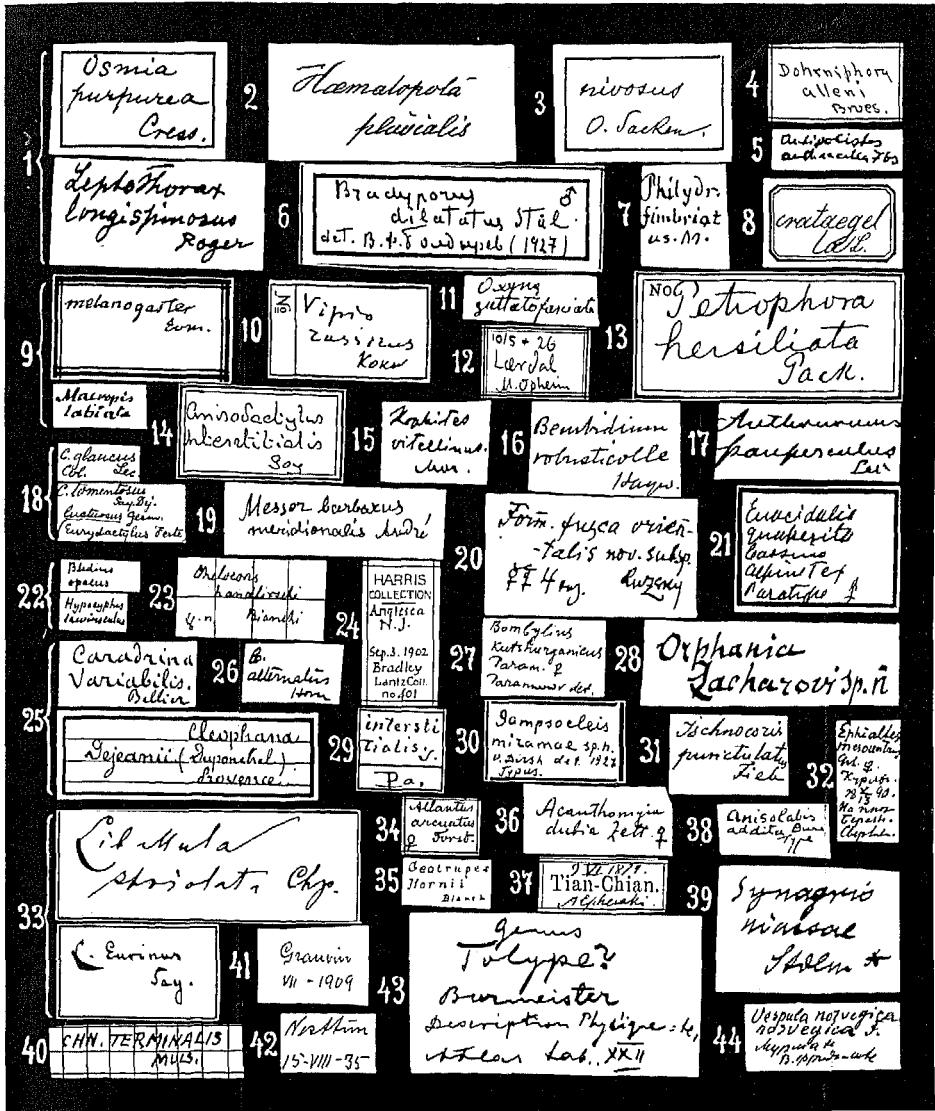 1
Osmia
purpurea
Cress.
Leptothorax
longispinosus
Roger
2
Hæmatopota
pluvialis
3
nivosus
O. Sacken.
4
Dohrniphora
alleni
Brues.
5
6
Bradyporus ♂
dilatatus Stål.
det. (1927)
7
Philydr.
fimbriat
us. M.
8
crataegel
9
melanogaster
Macropis
labiata
10
No
Vipio
rassicus
Kokw
11
Oxyna
guttatofasciata
12
10/5 + 26
Lærdal
M. Opheim
13
No
Petrophora
hersiliata
Pack.
14
Anisodactylus
interstitialis
Say
15
vitellinus.
16
Bembidium
robusticolle
Hayw.
17
Anthonomus
pauperculus
18
C. glaucus
Col. Lec.
C. tomentosus
Say. Dj.
Germ.
Eurydactylus
19
Messor barbarus
meridionalis André
20
Form. fusca orien-
-talis nov. subsp.
Ruzsky
21
Alpine Tex
Paratype ♀
22
Bledius
opacus
Hypocyphus
23
g. n. Bianchi
24
HARRIS
COLLECTION
Anglesea
N.J.
Sep. 3. 1902
Bradley
Lantz Coll.
no. 401
25
Caradrina
Variabilis.
Bellier
Cleophana
Dejeanii (Duponchel)
Provence
26
alternatus
Horn
27
Bombylius
Kutshurganicus
Param. ♀
Paramonov det.
28
Orphania
Zacharovi sp. n
29
intersti
tialis
Pa.
30
Gampsocleis
miramae sp. n.
det. 1927
Typus.
31
Ischnocoris
punctulatus
Fieb
32
Ephialtes
33
Libellula
Chp.
C. Eurinus
Say.
34
Allantus
arcuatus
♀ Forst.
35
Geotrupes
Hornii
Blanch
36
Acanthomyia
dubia Zett. ♀
37
Tian-Chian.
Alpheraki.
38
Anisolabis
additus
Type
39
Synagris
40
CHN. TERMINALIS
MULS.
41
VII - 1909
42
15-VIII-35
43
Genus
Tolype?
Burmeister
Description Physique
XXII
44
Vespula norvegica
norvegica